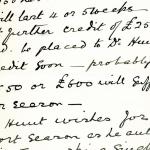 will last 4 or 5 weeks
further credit of £25
to be placed to Dr. Hun
edit soon — probably
50 or £600 will suff
season —
Hunt wishes for
ort season as he